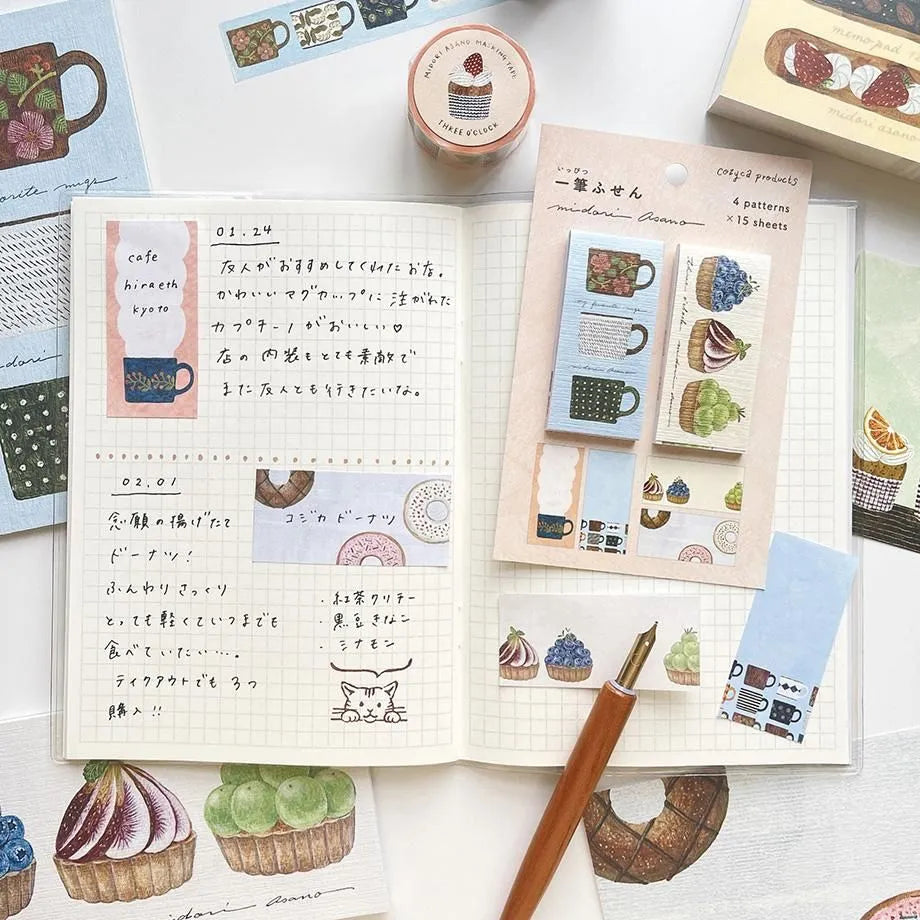 MIDORI ASANO MASKING TAPE
THREE O'CLOCK
memo pad
midori asano
いっぴつ
一筆ふせん
midori asano
cozyca products
4 patterns
×15 sheets
my favorite mugs
midori asano
orite mugs
midori
cafe
hiraeth
kyoto
01.24
友人がおすすめしてくれたお店。
かわいいマグカップに注がれた
カプチーノがおいしい♡
店の内装もとても素敵で
また友人とも行きたいな。
02.01
念願の揚げたて
ドーナツ!
ふんわりさっくり
とっても軽くていつまでも
食べていたい…。
テイクアウトでも3つ
購入!!
コジカドーナツ
・紅茶クリチー
・黒豆きなこ
・シナモン
midori asano